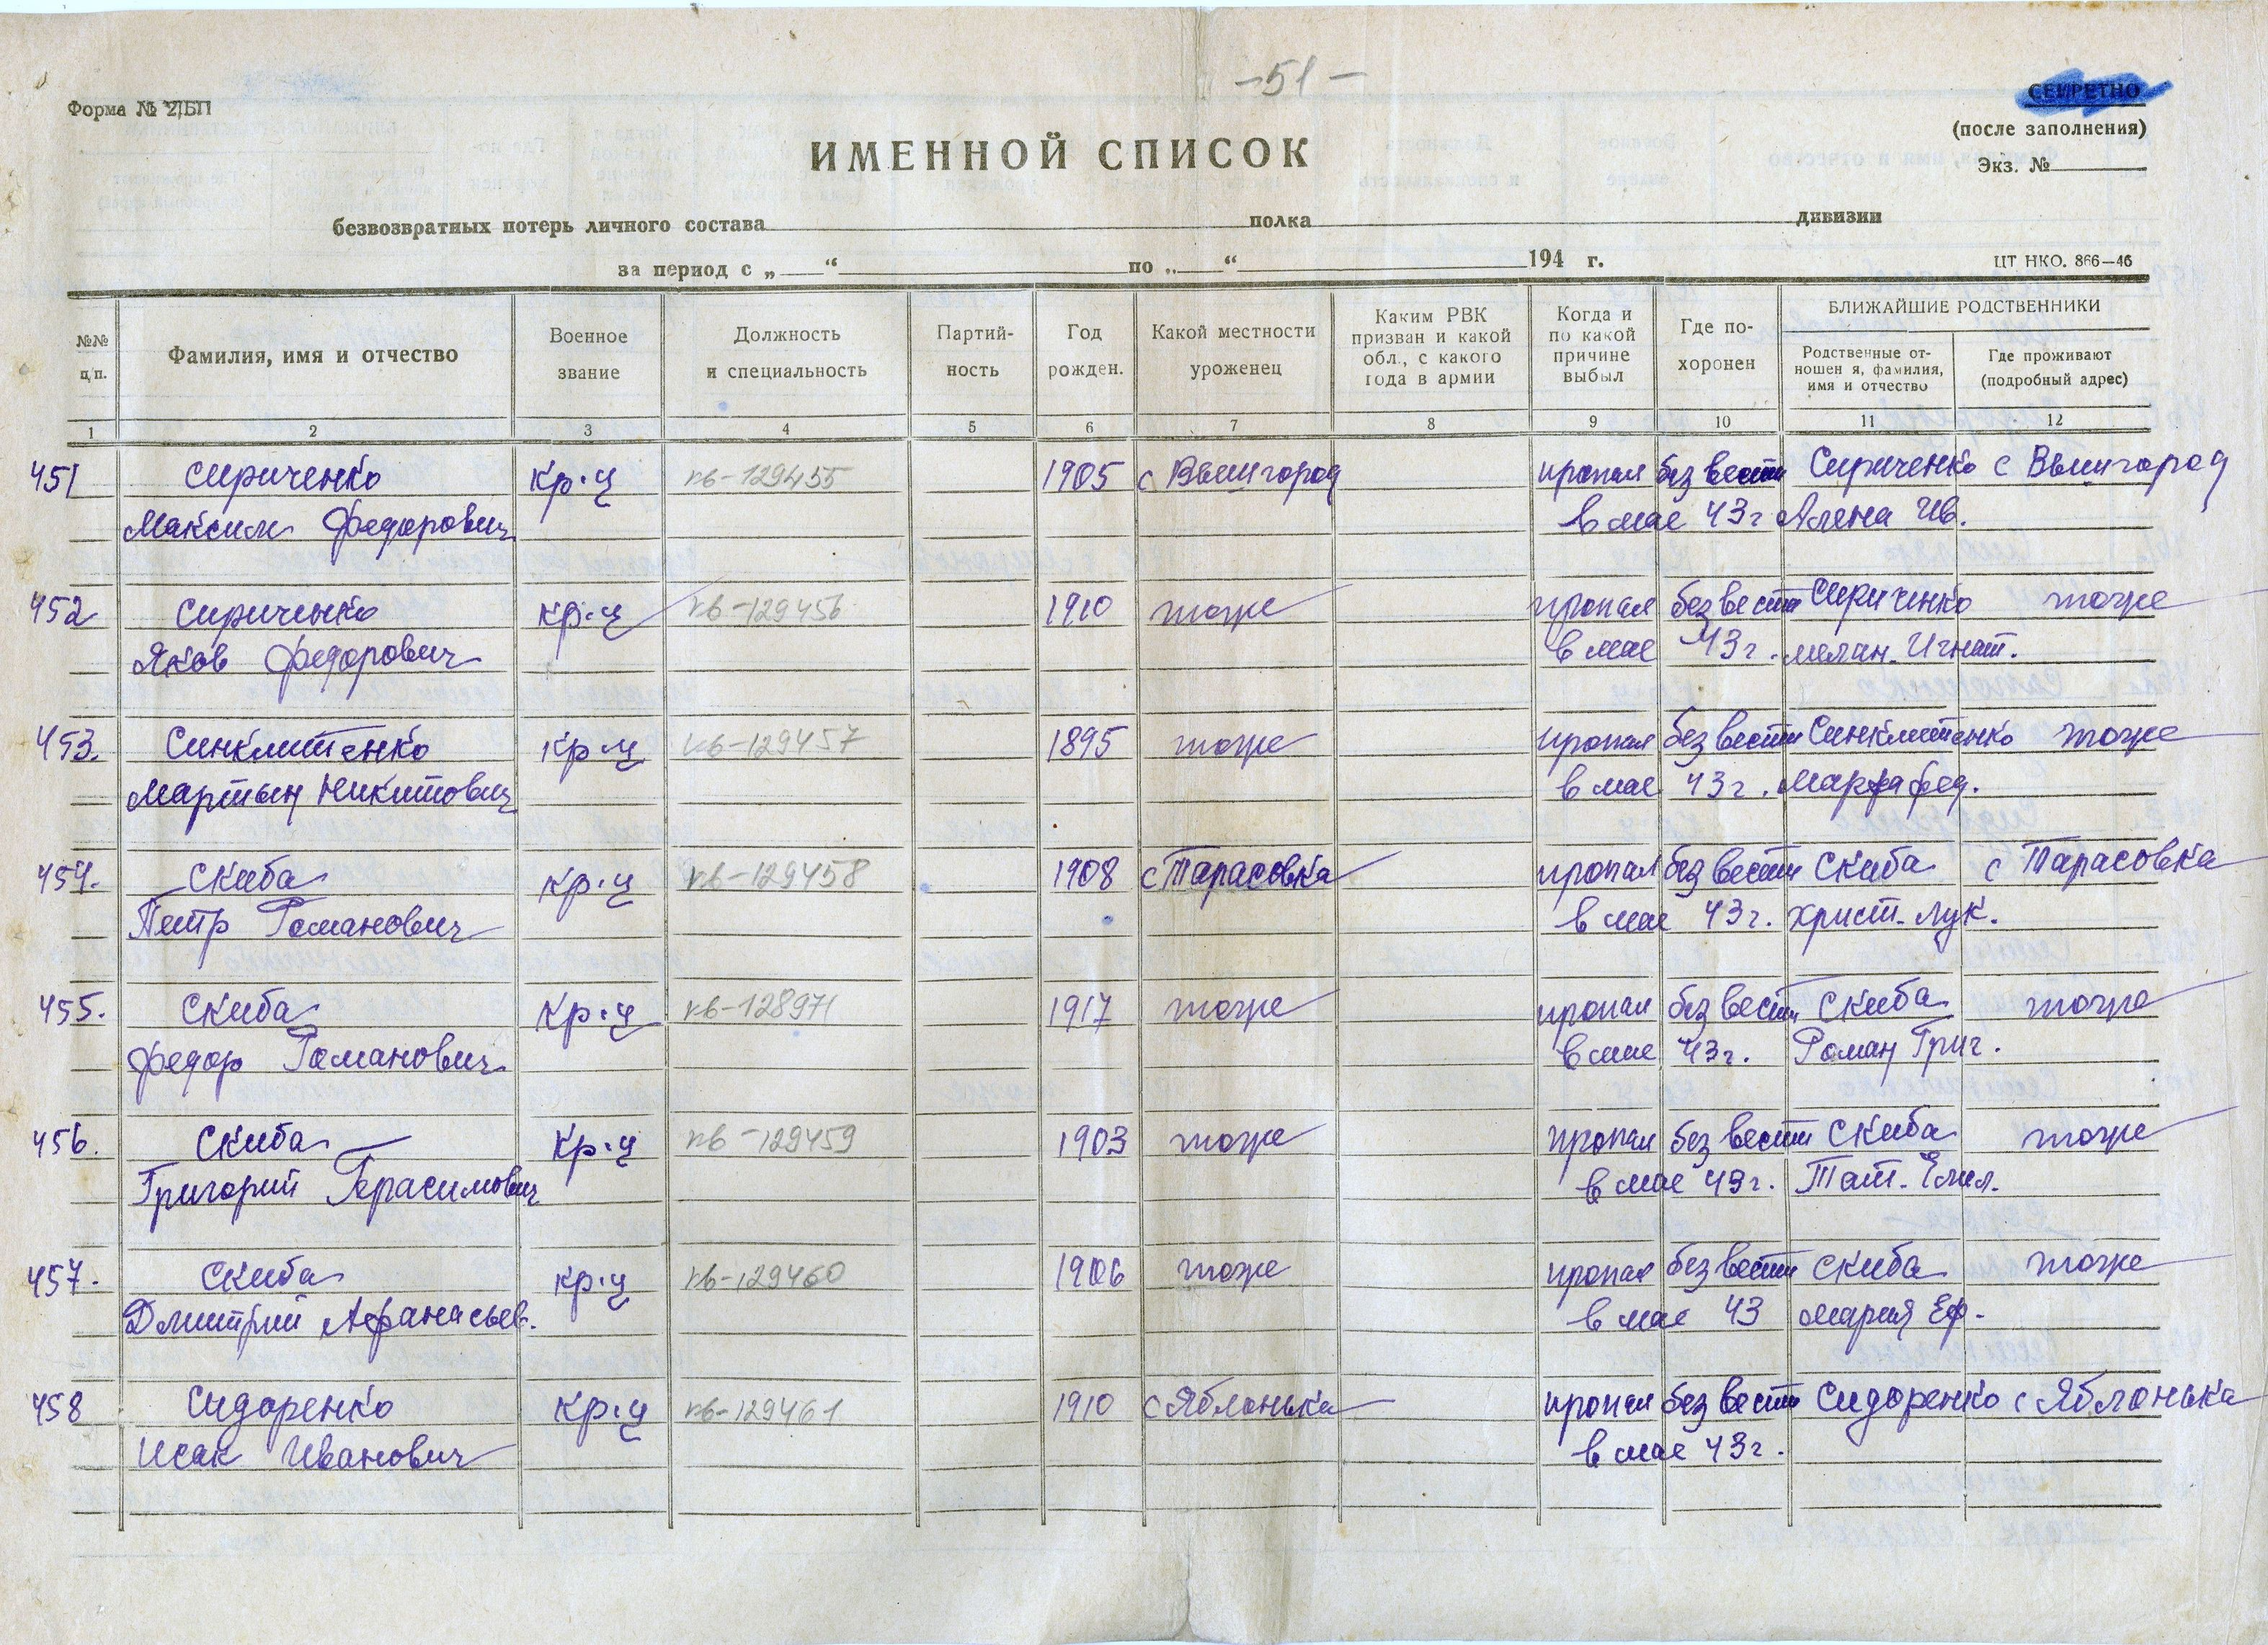 -51-
Форма № 2/БП
СЕКРЕТНО
(после заполнения)
Экз. №
ИМЕННОЙ СПИСОК
безвозвратных потерь личного состава полка дивизии
за период с „ “ по „ “ 194 г.
ЦТ НКО. 866—46
№№ п/п.
Фамилия, имя и отчество
Военное звание
Должность и специальность
Партий-ность
Год рожден.
Какой местности уроженец
Каким РВК призван и какой обл., с какого года в армии
Когда и по какой причине выбыл
Где по-хоронен
БЛИЖАЙШИЕ РОДСТВЕННИКИ
Родственные от-ношен я, фамилия, имя и отчество
Где проживают (подробный адрес)
1 2 3 4 5 6 7 8 9 10 11 12
451 Сириченко кр-ц кв-129455 1905 с Вышгород пропал без вести Сириченко с Вышгород
Максим Федорович в мае 43г Алена Ив.
452 Сириченко кр-ц кв-129456 1910 тоже пропал без вести Сириченко тоже
Яков Федорович в мае 43г. мелан. Игнат.
453. Синклитенко кр-ц кв-129457 1895 тоже пропал без вести Синклитенко тоже
Мартын Никитович в мае 43г. Марфа Фед.
454. Скиба кр-ц кв-129458 1908 с Тарасовка пропал без вести Скиба с Тарасовка
Петр Романович в мае 43г. Христ. Лук.
455. Скиба кр-ц кв-128971 1917 тоже пропал без вести Скиба тоже
Федор Романович в мае 43г. Роман Григ.
456. Скиба кр-ц кв-129459 1903 тоже пропал без вести Скиба тоже
Григорий Герасимович в мае 43г. Тат. Емел.
457. Скиба кр-ц кв-129460 1906 тоже пропал без вести Скиба тоже
Дмитрий Афанасьев. в мае 43 Мария Еф.
458 Сидоренко кр-ц кв-129461 1910 с Яблонька пропал без вести Сидоренко с Яблонька
Исак Иванович в мае 43г.